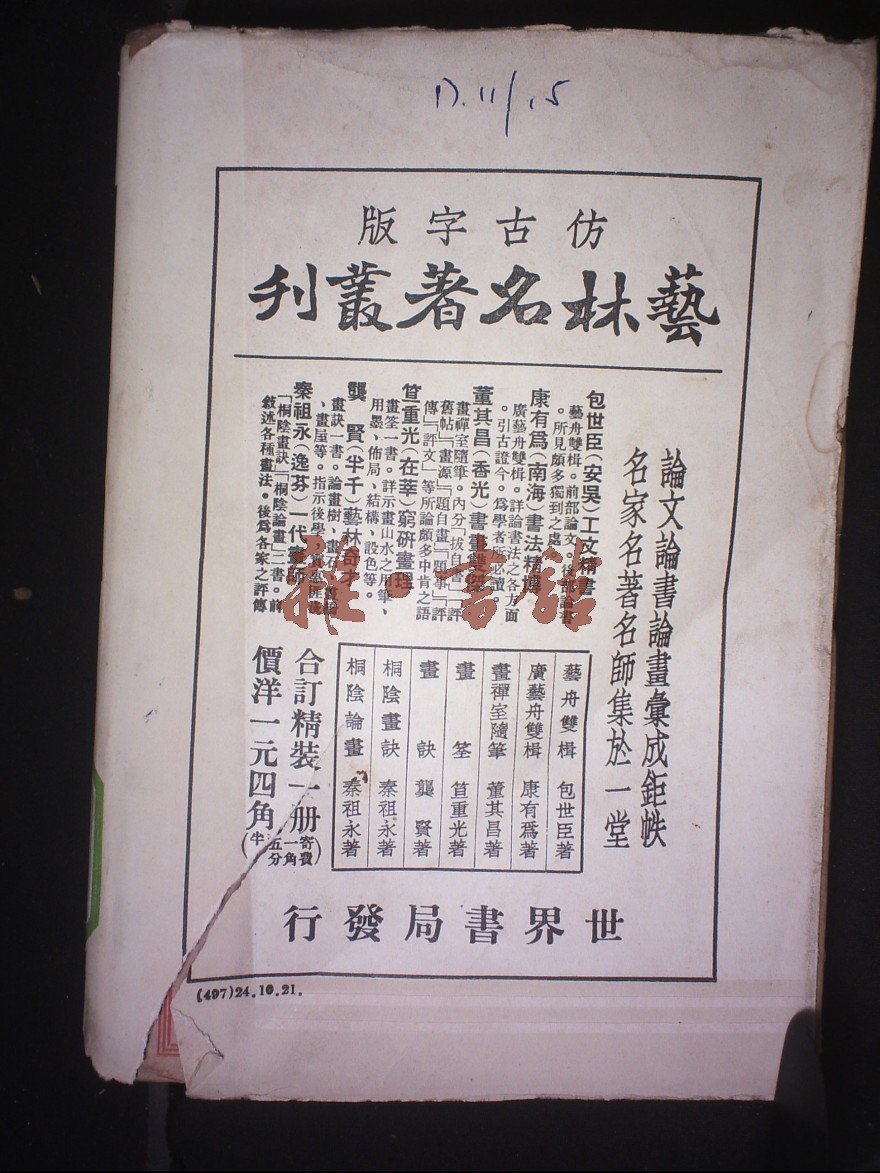 17.11/15
仿古字版
藝林名著叢刊
論文論書論畫彙成鉅帙
名家名著名師集於一堂
包世臣(安吳)工文精書
藝舟雙楫。前部論文。後部論書
。所見頗多獨到之處。
康有爲(南海)書法精
廣藝舟雙楫。詳論書法之各方面
。引古證今。爲學者所必讀。
董其昌(香光)書畫雙
畫禪室隨筆。內分「拔自書」「評
舊帖」「畫源」「題自畫」「題」「評
傳」「評文」等所論頗多中肯之語
笪重光(在莘)窮研畫理
畫筌一書。詳示畫山水之用筆、
用墨、佈局、結構、設色等。
龔 賢(半千)藝林奇才
畫訣一書。論畫樹、畫石、
、畫屋等。指示後學、
秦祖永(逸芬)一代畫師
「桐陰畫訣」「桐陰論畫」三書。前
敘述各種畫法。後爲各家之評傳
雜·書館
藝舟雙楫 包世臣著
廣藝舟雙楫 康有爲著
畫禪室隨筆 董其昌著
畫筌 笪重光著
畫訣 龔賢著
桐陰畫訣 秦祖永著
桐陰論畫 秦祖永著
合訂精裝一册(寄費一角五分半)
價洋一元四角
世界書局發行
(497)24.10.21.